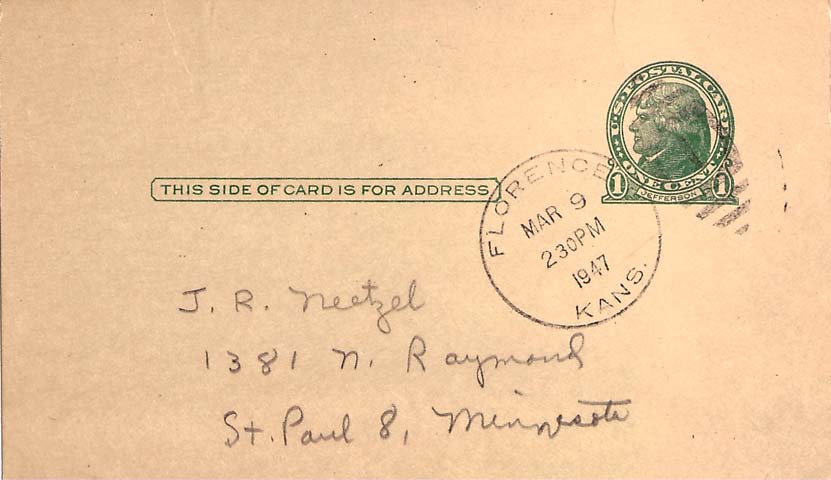 U.S. POSTAL CARD
ONE CENT
1 JEFFERSON 1
THIS SIDE OF CARD IS FOR ADDRESS
FLORENCE
MAR 9
230PM
1947
KANS.
J. R. Neetzel
1381 N. Raymond
St. Paul 8, Minnesota